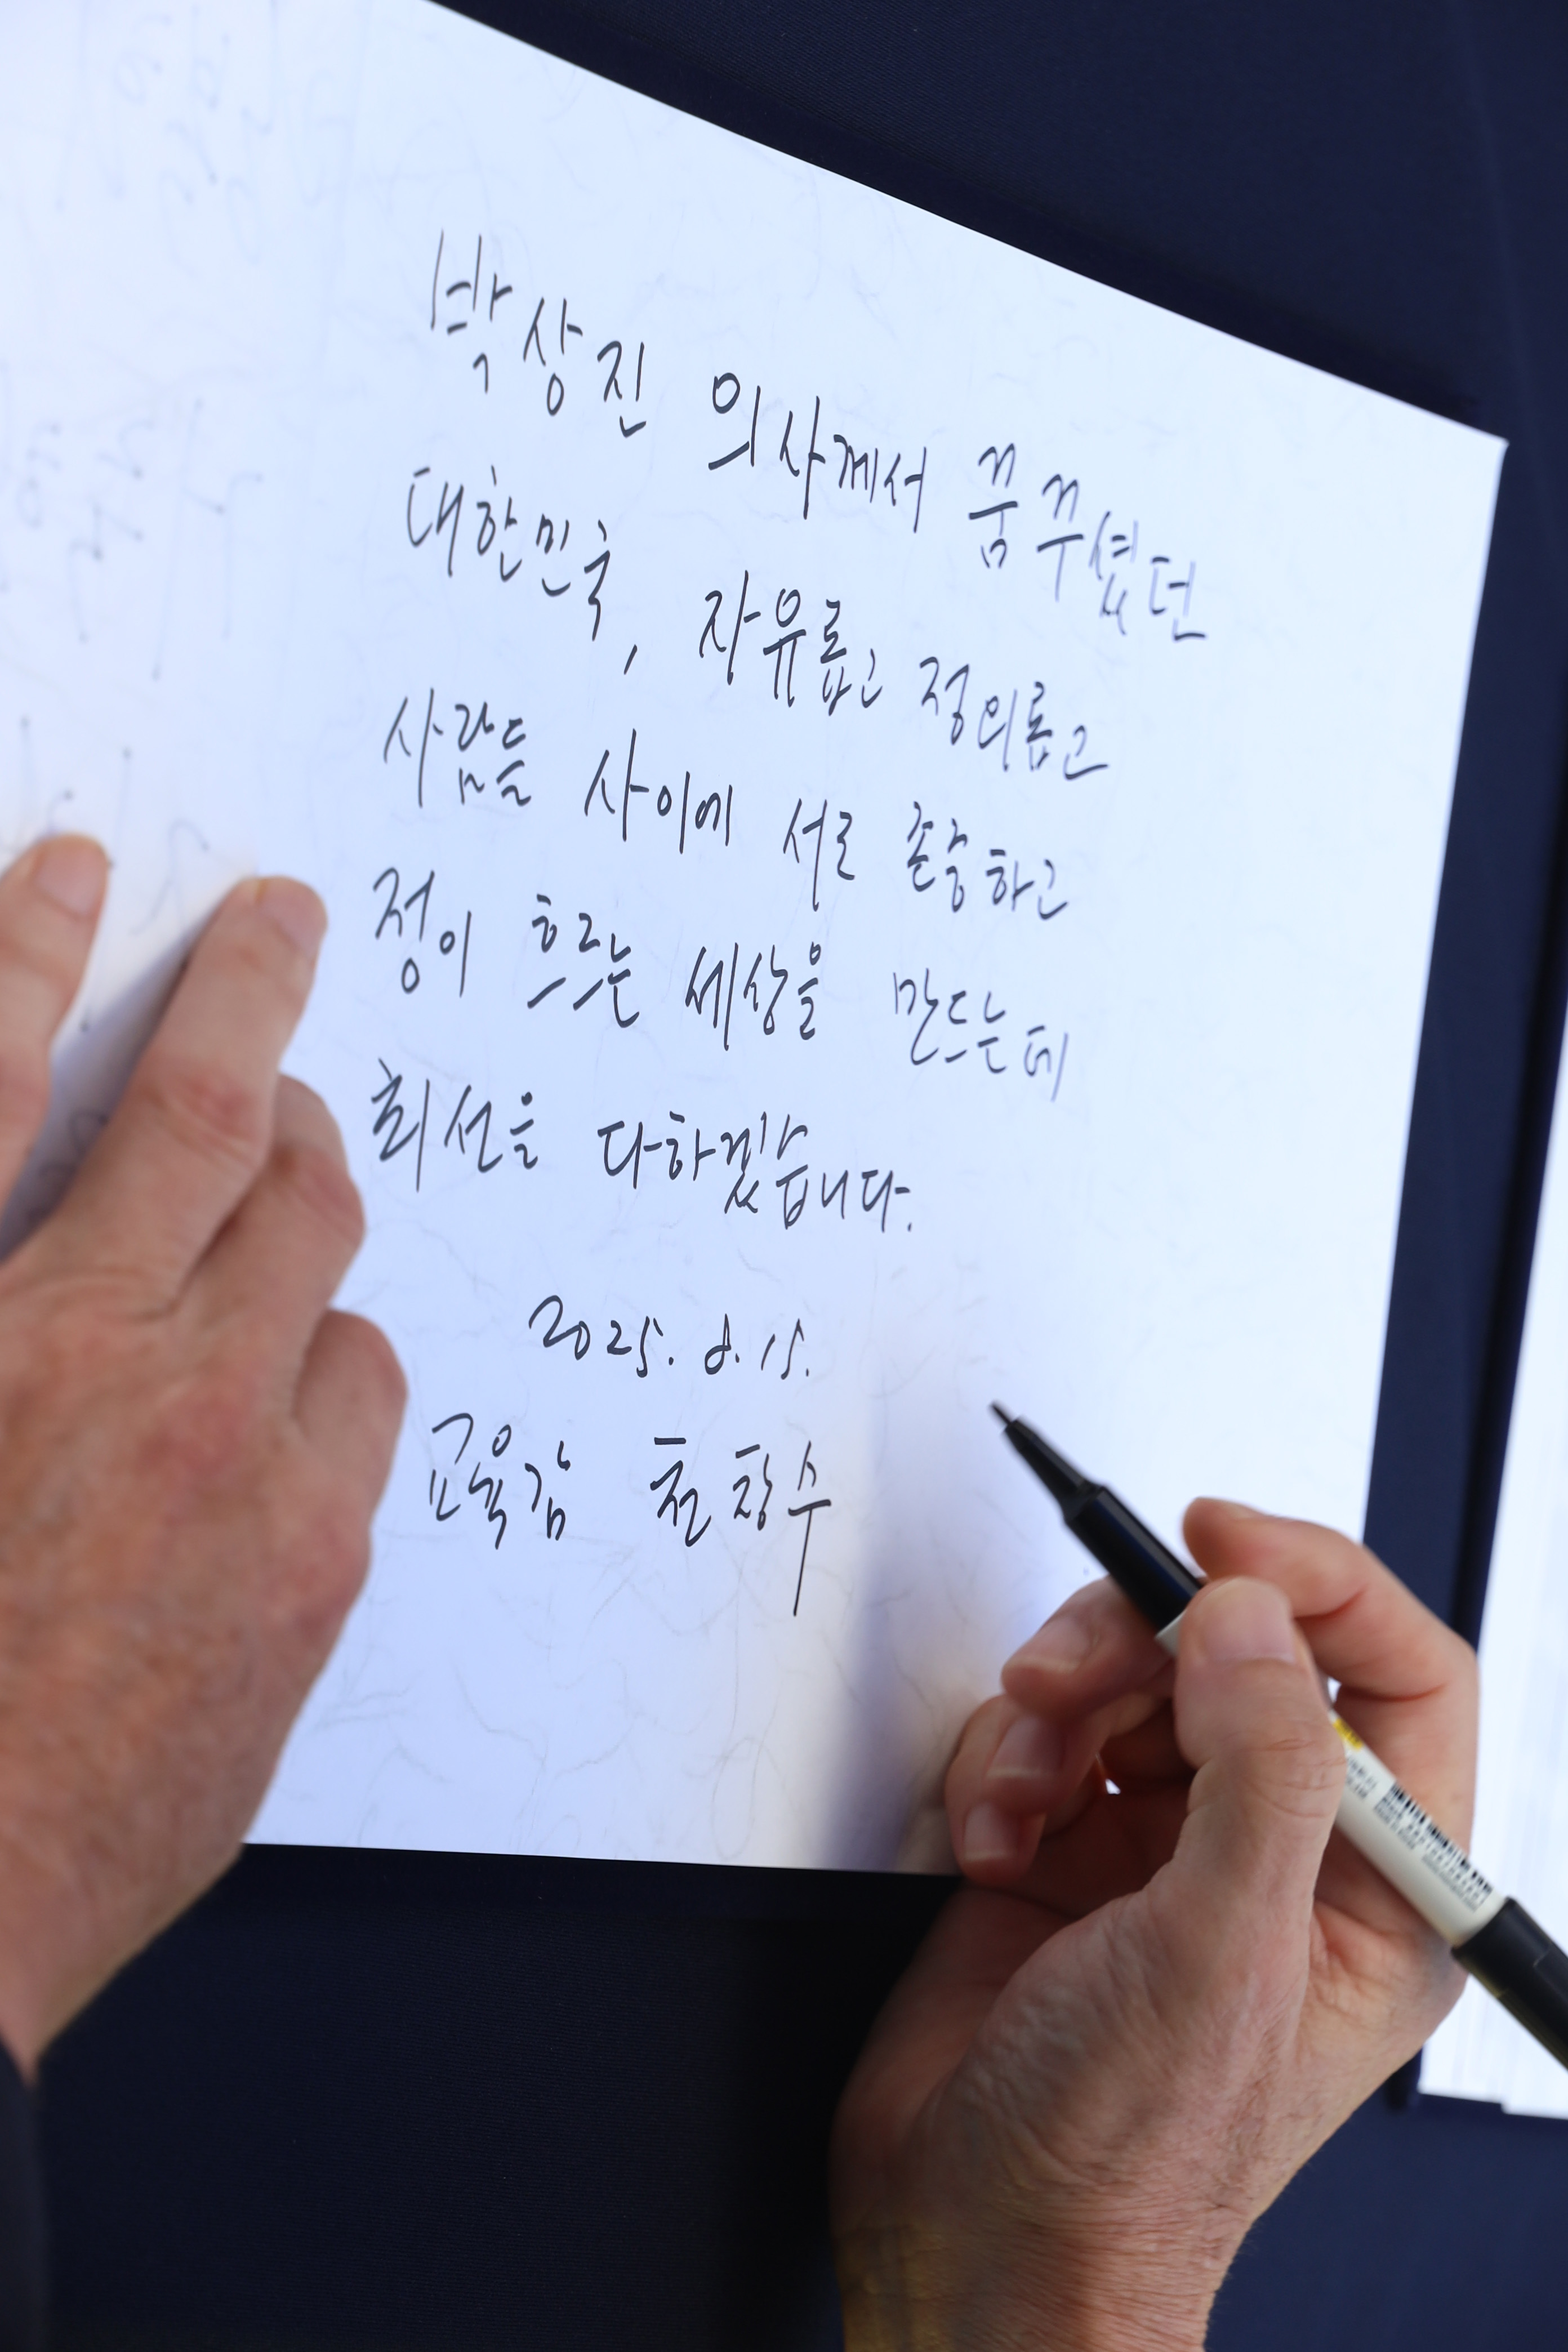 박상진 의사께서 꿈꾸셨던
대한민국, 자유롭고 정의롭고
사람들 사이에 서로 존중하고
정이 흐르는 세상을 만드는데
최선을 다하겠습니다.
2025. 8. 15.
교육감 천창수